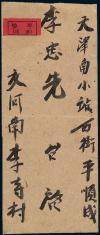 天津南小站西街平順成
李忠先 台啓
交河南李寺村